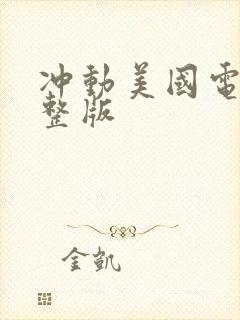 冲動美國電
整版
金凱